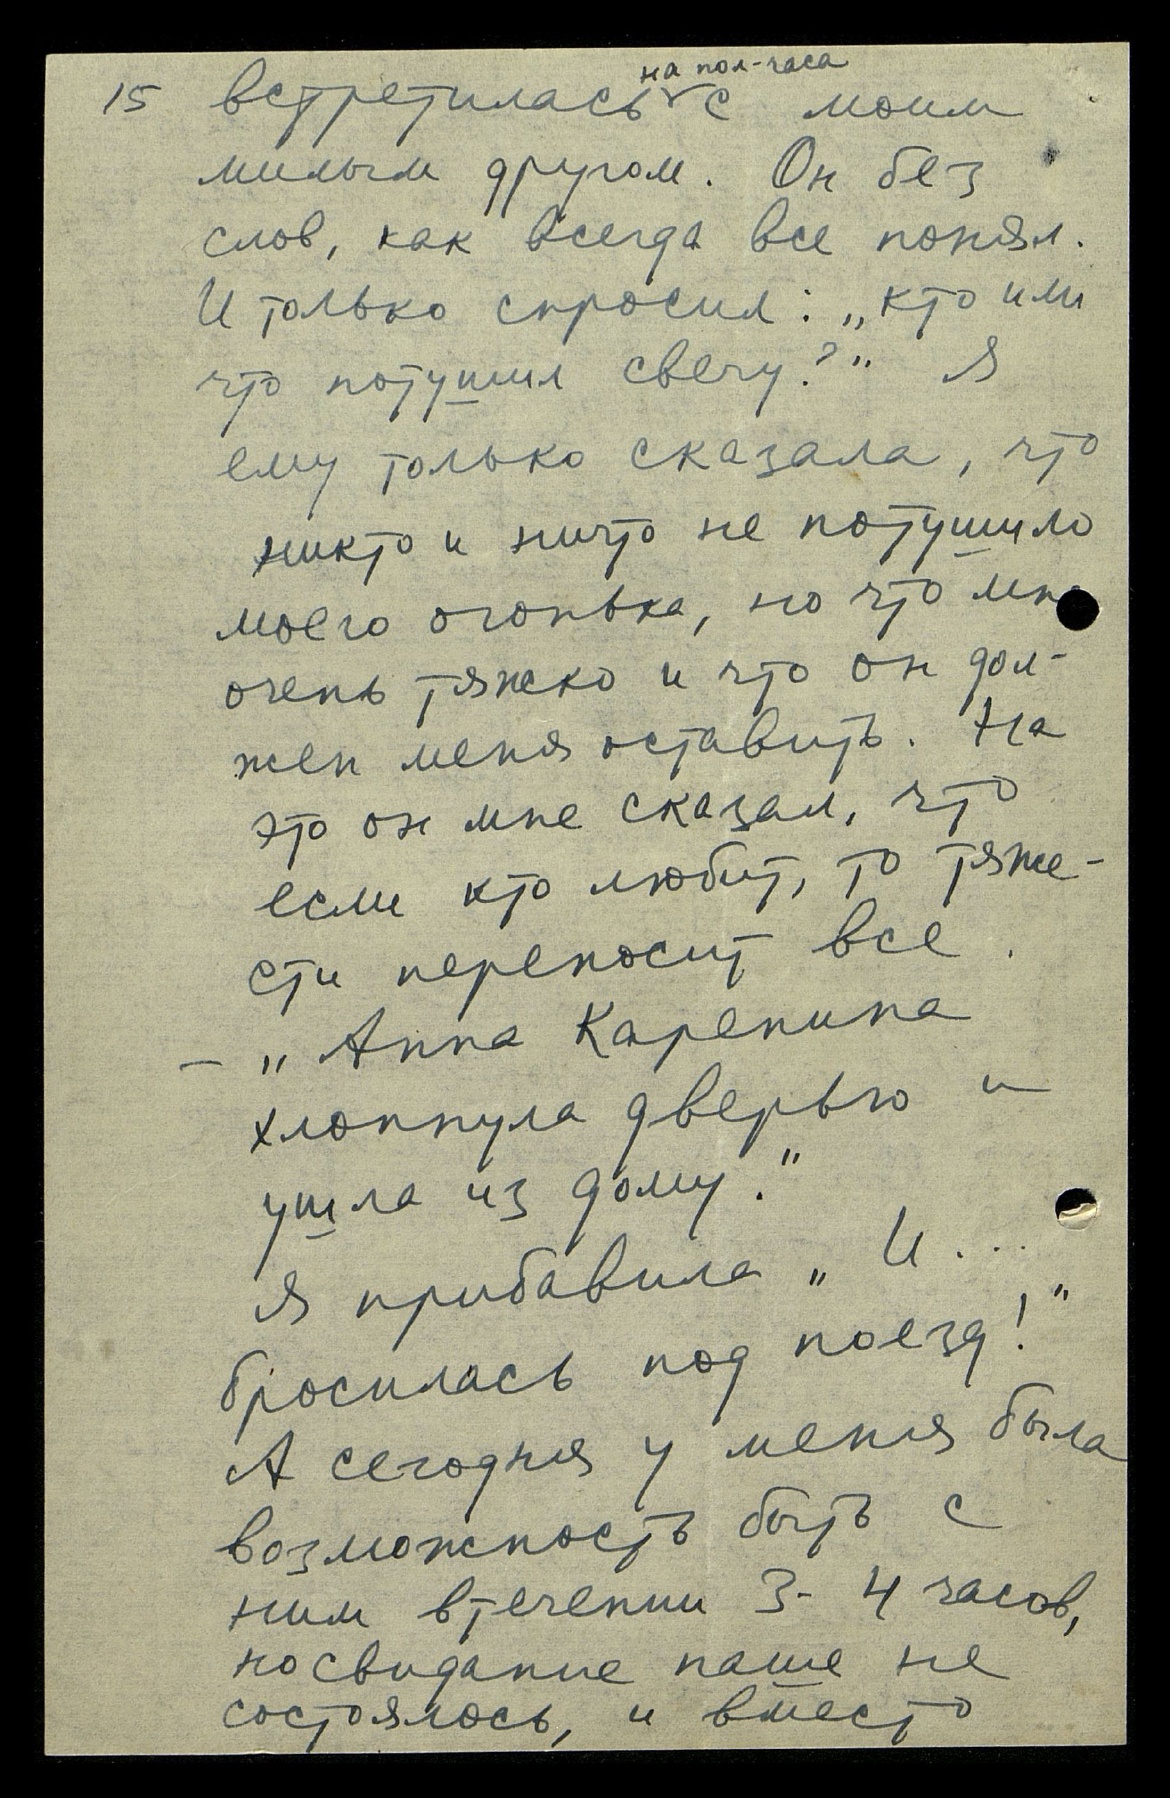 на пол-часа
15 встретилась с моим
милым другом. Он без
слов, как всегда все понял.
И только спросил: „кто или
что потушил свечу?" Я
ему только сказала, что
никто и ничто не потушило
моего огонька, но что мне
очень тяжко и что он дол-
жен меня оставить. На
это он мне сказал, что
если кто любит, то тяже-
сти переносит все.
— „Анна Каренина
хлопнула дверью и
ушла из дому."
Я прибавила „И...
бросилась под поезд!"
А сегодня у меня была
возможность быть с
ним втечении 3-4 часов,
но свидание наше не
состоялось, и вместо